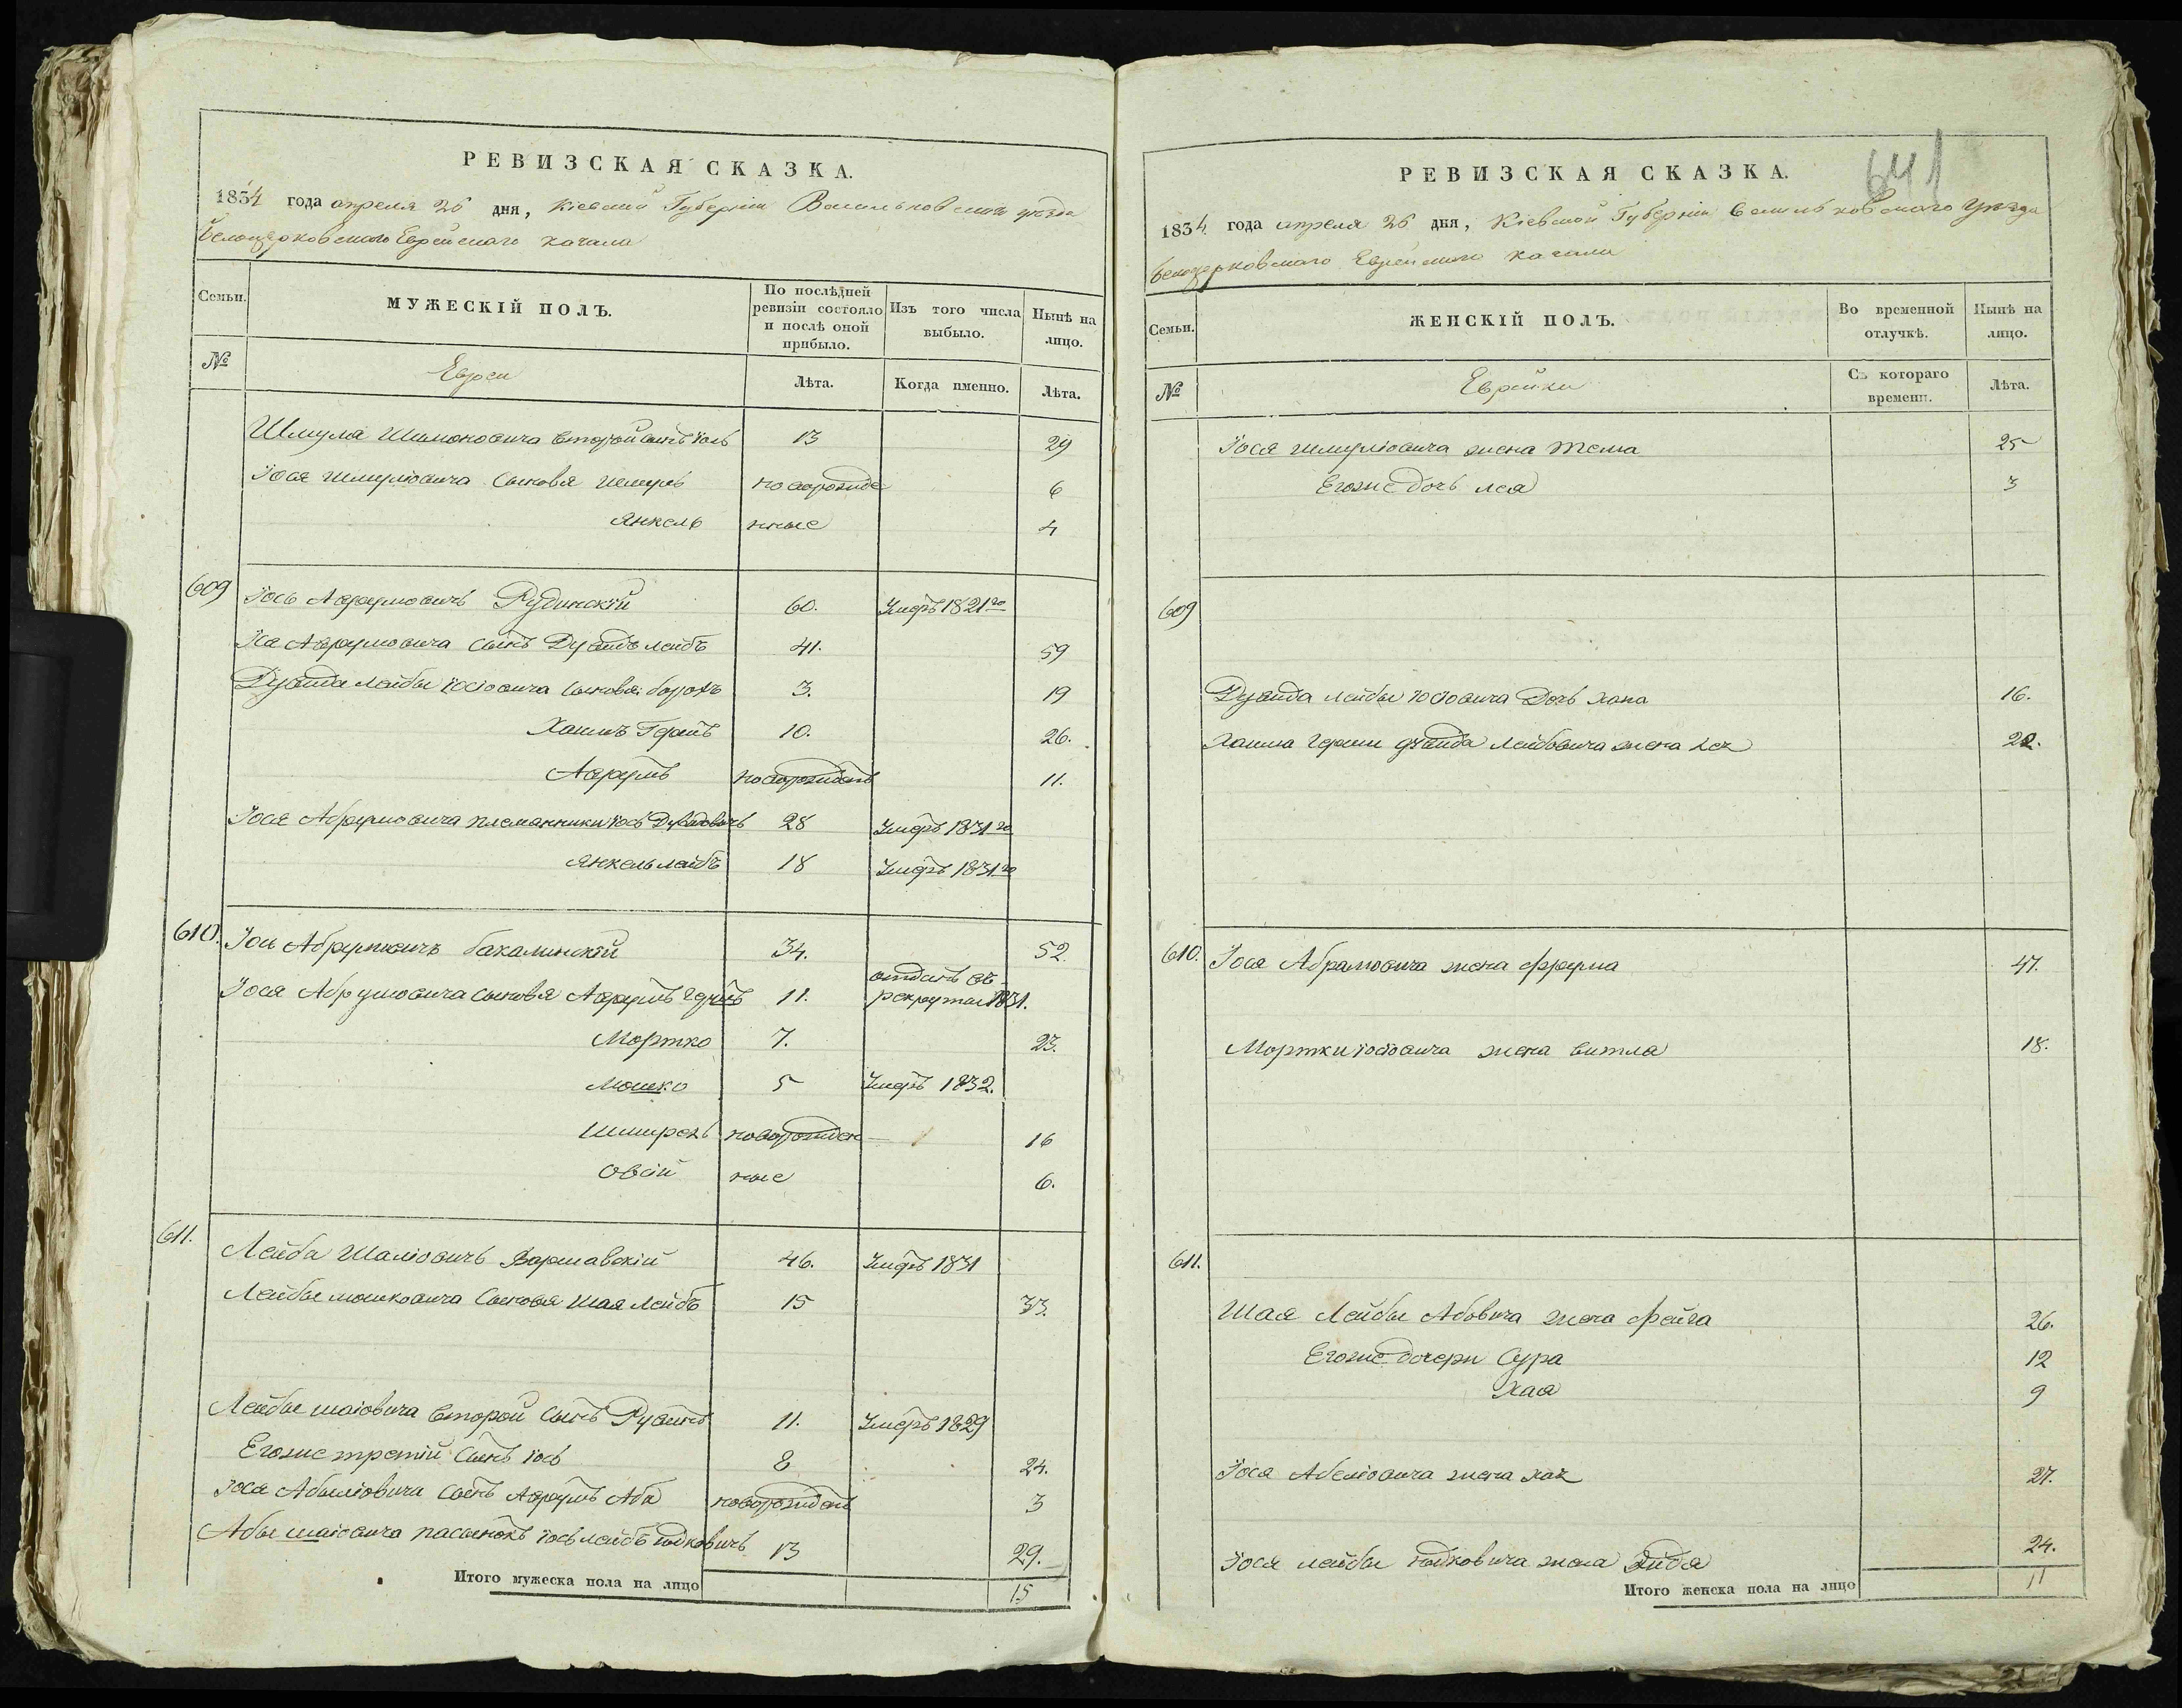 РЕВИЗСКАЯ СКАЗКА.
1834 года апреля 26 дня, Кіевской Губерніи Васильковскаго уезда
Белоцерковскаго Еврейскаго кагала
Семьи.
МУЖЕСКІЙ ПОЛЪ.
По послѣдней ревизіи состояло и послѣ оной прибыло.
Изъ того числа выбыло.
Нынѣ на лицо.
№
Евреи
Лѣта.
Когда именно.
Лѣта.
Шмуля Шимоновича второй сынъ Іось 13 29
Іося Шмуліовича сыновя Шмуль новорожде 6
Янкель нные 4
609 Іось Аврумовичъ Рудинскій 60. Умеръ 1821го
Аврумовича сынъ Дувидъ Лейбъ 41. 59
Дувида Лейбы Іосіовича сыновя: борохъ 3. 19
Хаимъ Гершъ 10. 26.
Аврумъ новорожденъ 11.
Іося Абрумовича племянники Іось Дувидовичъ 28 Умеръ 1831го
Янкель Лейбъ 18 Умеръ 1831го
610. Іось Абрумовичъ бакалинскій 34. 52.
Іося Абрумовича сыновя Аврумъ Гершъ 11. отданъ въ рекруты 1831.
Мортко 7. 23.
Мошко 5 Умеръ 1832.
новорожден 16
Овсій ные 6.
611. Лейба Шаліовичъ Варшавскій 46. Умеръ 1831
Лейбы мошковича сыновя Шая Лейбъ 15 33.
Лейбы шаіовича второй сынъ Рувинъ 11. Умеръ 1829
Егоже третій сынъ Іось 8 24.
Іося Абеліовича сынъ Аврумъ Аба новорожденъ 3
Абы шаіовича пасынокъ Іось Лейбъ юдковичъ 13 29.
Итого мужеска пола на лицо 15
641
РЕВИЗСКАЯ СКАЗКА.
1834 года апреля 26 дня, Кіевской Губерніи Васильковскаго уезда
Белоцерковскаго Еврейскаго кагала
Семьи.
ЖЕНСКІЙ ПОЛЪ.
Во временной отлучкѣ.
Нынѣ на лицо.
№
Еврейки
Съ котораго времени.
Лѣта.
Іося шмуліовича жена Тема 25
Егоже дочь Лея 3
609
Дувида Лейбы Іосіовича Дочь Хана 16.
Хаима Герши дувида Лейбовича жена 22.
610. Іося Абрамовича жена Фрума 47.
Мортки Іосіовича жена Витля 18.
611.
Шая Лейбы Абовича жена Фейга 26.
Егоже дочери Сура 12
Хая 9
Іося Абеліовича жена 27.
Іося Лейбы юдковича жена 24.
Итого женска пола на лицо 11